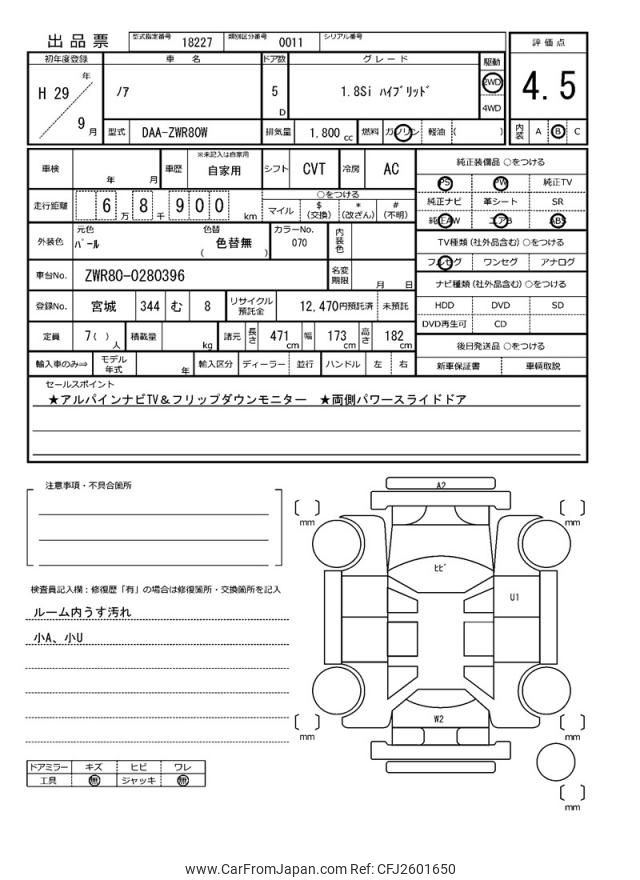 出品票 型式指定番号 18227 類別区分番号 0011 シリアル番号
初年度登録 車 名 ドア数 グレード 駆動 評価点
H 29 年 9 月 ノア 5 D 1.8Si ハイブリッド 2WD 4WD 4.5
型式 DAA-ZWR80W 排気量 1.800 cc 燃料 ガソリン 軽油 ( ) 内装 A B C
車検 年 月 車歴 ※未記入は自家用 自家用 シフト CVT 冷房 AC 純正装備品 ○をつける
PS PW 純正TV
走行距離 6 万 8 千 9 0 0 km ○をつける 純正ナビ 革シート SR
マイル $ (交換) * (改ざん) # (不明) 純正AW エアB ABS
外装色 元色 パール 色替 ( 色替無 ) カラーNo. 070 内装色 TV種類 (社外品含む) ○をつける
フルセグ ワンセグ アナログ
車台No. ZWR80-0280396 名変期限 月 日 ナビ種類 (社外品含む) ○をつける
登録No. 宮城 344 む 8 リサイクル預託金 12,470円預託済 未預託 HDD DVD SD
DVD再生可 CD
定員 7( ) 人 積載量 kg 諸元 長さ 471 cm 幅 173 cm 高さ 182 cm 後日発送品 ○をつける
輸入車のみ⇒ モデル年式 年 輸入区分 ディーラー 並行 ハンドル 左 右 新車保証書 車輌取説
セールスポイント
★アルパインナビTV＆フリップダウンモニター ★両側パワースライドドア
注意事項・不具合箇所
A2
mm mm
ヒビ
U1
検査員記入欄：修復歴「有」の場合は修復箇所・交換箇所を記入
ルーム内うす汚れ
小A、小U
W2
mm mm
ドアミラー キズ ヒビ ワレ
工具 無 ジャッキ 無
mm
www.CarFromJapan.com Ref: CFJ2601650